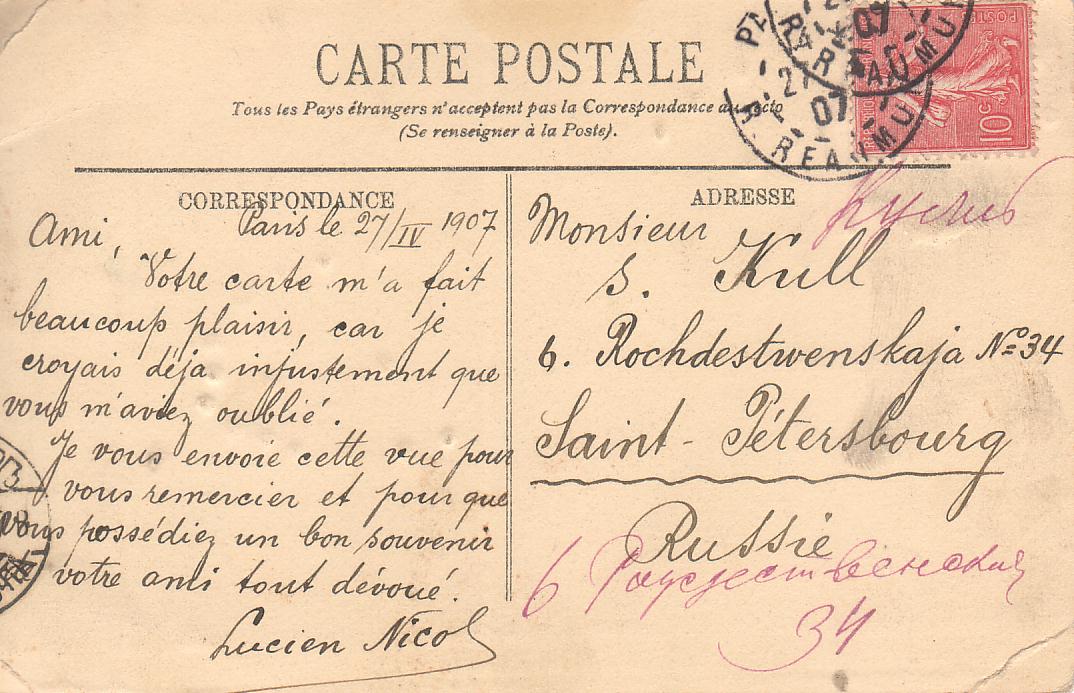 CARTE POSTALE
Tous les Pays étrangers n'acceptent pas la Correspondance au recto
(Se renseigner à la Poste).
R. REAUMUR
21
07
07
R. REAUMUR
POSTES
10c
CORRESPONDANCE
Paris le 27/IV 1907
Ami,
Votre carte m'a fait
beaucoup plaisir, car je
croyais déja injustement que
vous m'aviez oublié.
Je vous envoie cette vue pour
vous remercier et pour que
vous possédiez un bon souvenir
votre ami tout dévoué.
Lucien Nicol
ADRESSE
Monsieur
S. Kull
6. Rochdestwenskaja No 34
Saint-Pétersbourg
Russie
6 Рождественская
34